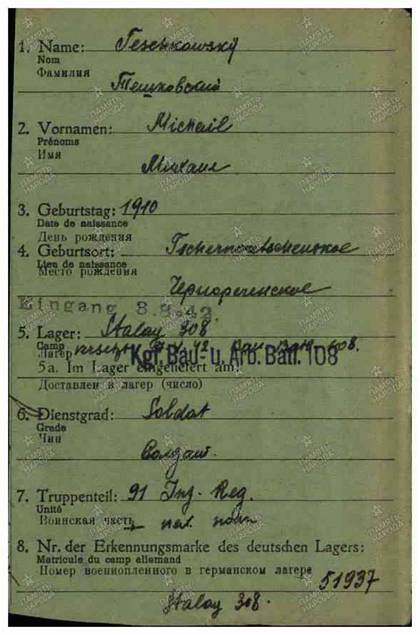 1. Name: Teschkowsky
Nom
Фамилия
Тешковский
2. Vornamen: Michail
Prénoms
Имя
Михаил
3. Geburtstag: 1910
Date de naissance
День рождения
4. Geburtsort: Tschernoretschenskoe
Lieu de naissance
Место рождения
Чернореченское
Eingang 8.9.42.
5. Lager: Stalag 308
Camp
Лагерь
Kgf. Bau- u. Arb. Batl. 108
5a. Im Lager eingeliefert am:
Доставлен в лагерь (число)
6. Dienstgrad: Soldat
Grade
Чин
Солдат.
7. Truppenteil: 91 Inf. Reg.
Unité
Воинская часть
8. Nr. der Erkennungsmarke des deutschen Lagers:
Matricule du camp allemand
Номер военнопленного в германском лагере
51937
Stalag 308.